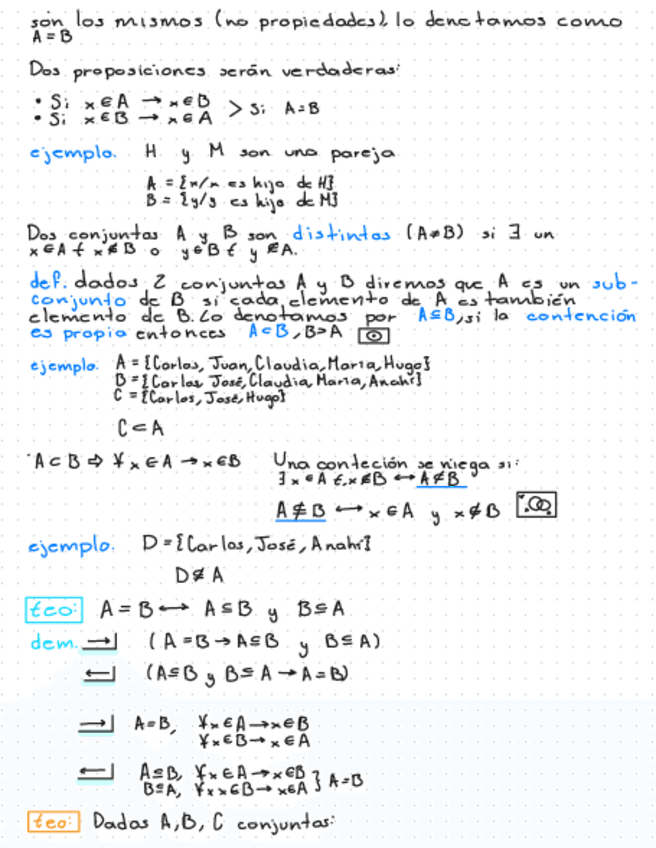 son los mismos (no propiedades), lo denotamos como
A = B
Dos proposiciones serán verdaderas:
• Si x ∈ A → x ∈ B > Si A = B
• Si x ∈ B → x ∈ A
ejemplo. H y M son una pareja
A = {x/x es hijo de H}
B = {y/y es hijo de M}
Dos conjuntos A y B son distintos (A≠B) si ∃ un
x ∈ A t x ∉ B o y ∈ B t y ∉ A.
def. dados 2 conjuntos A y B diremos que A es un sub-
conjunto de B si cada elemento de A es también
elemento de B. Lo denotamos por A⊆B, si la contención
es propia entonces A⊂B, B⊃A
ejemplo. A = {Carlos, Juan, Claudia, María, Hugo}
B = {Carlos José, Claudia, María, Anahí}
C = {Carlos, José, Hugo}
C ⊂ A
A ⊂ B ⇒ ∀x ∈ A → x ∈ B Una conteción se niega si:
∃ x ∈ A t, x ∉ B ↔ A ⊄ B
A ⊈ B ↔ x ∈ A y x ∉ B
ejemplo. D = {Carlos, José, Anahí}
D ⊄ A
teo: A = B ↔ A ⊆ B y B ⊆ A
dem. → | (A = B → A ⊆ B y B ⊆ A)
← | (A ⊆ B y B ⊆ A → A = B)
→ | A = B, ∀x ∈ A → x ∈ B
∀x ∈ B → x ∈ A
← | A ⊆ B, ∀x ∈ A → x ∈ B } A = B
B ⊆ A, ∀x x ∈ B → x ∈ A
teo: Dados A, B, C conjuntos: